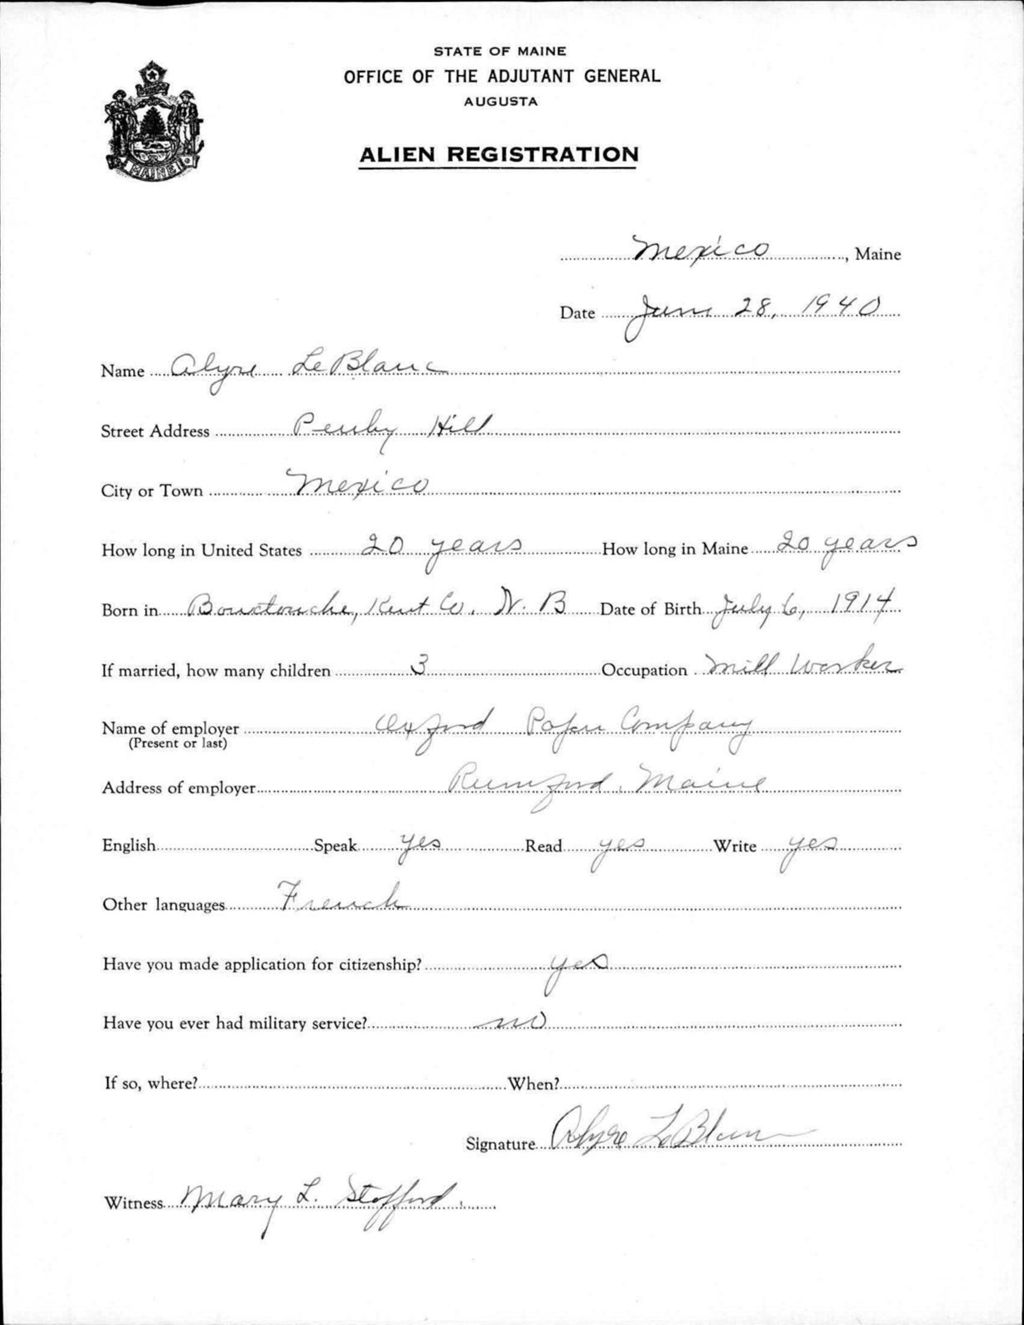 STATE OF MAINE
OFFICE OF THE ADJUTANT GENERAL
AUGUSTA
ALIEN REGISTRATION
MAINE
Mexico, Maine
Date June 28, 1940
Name Alyre LeBlanc
Street Address Hill
City or Town Mexico
How long in United States 20 years How long in Maine 20 years
Born in Bouctouche, Kent Co. N. B Date of Birth July 6, 1914
If married, how many children 3 Occupation Mill Worker
Name of employer Oxford Paper Company
(Present or last)
Address of employer Rumford, Maine
English Speak yes Read yes Write yes
Other languages French
Have you made application for citizenship? yes
Have you ever had military service? no
If so, where? When?
Signature Alyre LeBlanc
Witness Mary L. Stofford.